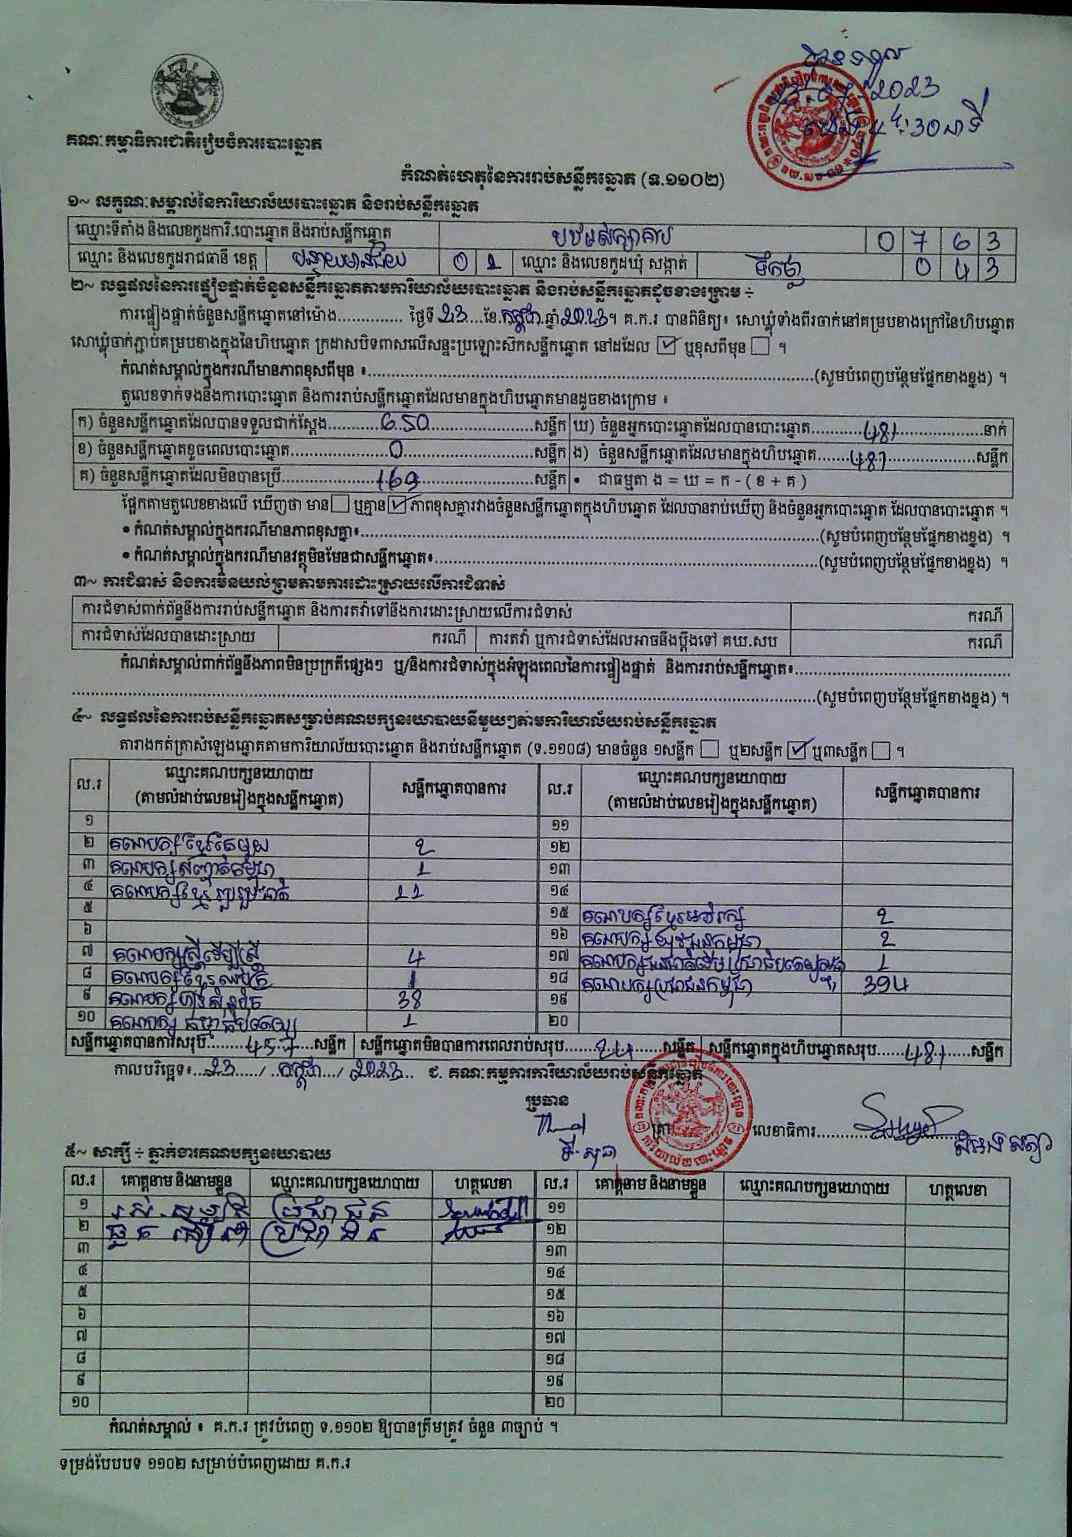 បានទទួល
2023
30នាទី
គណៈកម្មាធិការជាតិរៀបចំការបោះឆ្នោត
កំណត់ហេតុនៃការរាប់សន្លឹកឆ្នោត (ទ.១១០២)
១~ លក្ខណៈសម្គាល់នៃការិយាល័យបោះឆ្នោត និងរាប់សន្លឹកឆ្នោត
ឈ្មោះទីតាំង និងលេខកូដការិ.បោះឆ្នោត និងរាប់សន្លឹកឆ្នោត 0 7 6 3
ឈ្មោះ និងលេខកូដរាជធានី ខេត្ត បន្ទាយមានជ័យ 0 1 ឈ្មោះ និងលេខកូដឃុំ សង្កាត់ ទឹកថ្លា 0 4 3
២~ លទ្ធផលនៃការផ្ទៀងផ្ទាត់ចំនួនសន្លឹកឆ្នោតតាមការិយាល័យបោះឆ្នោត និងរាប់សន្លឹកឆ្នោតដូចខាងក្រោម ÷
ការផ្ទៀងផ្ទាត់ចំនួនសន្លឹកឆ្នោតនៅម៉ោង.............. ថ្ងៃទី 23 ខែ កក្កដា ឆ្នាំ 2023 ។ គ.ក.រ បានពិនិត្យ៖ សោឃ្លុំទាំងពីរចាក់នៅគម្របខាងក្រៅនៃហិបឆ្នោត
សោឃ្លុំចាក់ភ្ជាប់គម្របខាងក្នុងនៃហិបឆ្នោត ក្រដាសបិទពាសលើសន្ទះប្រឡោះស៊កសន្លឹកឆ្នោត នៅដដែល ☑ ឬខុសពីមុន ☐ ។
កំណត់សម្គាល់ក្នុងករណីមានភាពខុសពីមុន ៖..............(សូមបំពេញបន្ថែមផ្នែកខាងខ្នង) ។
តួលេខទាក់ទងនឹងការបោះឆ្នោត និងការរាប់សន្លឹកឆ្នោតដែលមានក្នុងហិបឆ្នោតមានដូចខាងក្រោម ៖
ក) ចំនួនសន្លឹកឆ្នោតដែលបានទទួលជាក់ស្តែង 650 សន្លឹក ឃ) ចំនួនអ្នកបោះឆ្នោតដែលបានបោះឆ្នោត 481 នាក់
ខ) ចំនួនសន្លឹកឆ្នោតខូចពេលបោះឆ្នោត 0 សន្លឹក ង) ចំនួនសន្លឹកឆ្នោតដែលមានក្នុងហិបឆ្នោត 481 សន្លឹក
គ) ចំនួនសន្លឹកឆ្នោតដែលមិនបានប្រើ 169 សន្លឹក • ជាធម្មតា ង = ឃ = ក - ( ខ + គ )
ផ្អែកតាមតួលេខខាងលើ ឃើញថា មាន ☐ ឬគ្មាន ☑ ភាពខុសគ្នារវាងចំនួនសន្លឹកឆ្នោតក្នុងហិបឆ្នោត ដែលបានរាប់ឃើញ និងចំនួនអ្នកបោះឆ្នោត ដែលបានបោះឆ្នោត ។
• កំណត់សម្គាល់ក្នុងករណីមានភាពខុសគ្នា៖..............(សូមបំពេញបន្ថែមផ្នែកខាងខ្នង) ។
• កំណត់សម្គាល់ក្នុងករណីមានវត្ថុមិនមែនជាសន្លឹកឆ្នោត៖..............(សូមបំពេញបន្ថែមផ្នែកខាងខ្នង) ។
៣~ ការជំទាស់ និងការមិនយល់ព្រមតាមការដោះស្រាយលើការជំទាស់
ការជំទាស់ពាក់ព័ន្ធនឹងការរាប់សន្លឹកឆ្នោត និងការតវ៉ាទៅនឹងការដោះស្រាយលើការជំទាស់ ករណី
ការជំទាស់ដែលបានដោះស្រាយ ករណី ការតវ៉ា ឬការជំទាស់ដែលអាចនឹងប្តឹងទៅ គឃ.សប ករណី
កំណត់សម្គាល់ពាក់ព័ន្ធនឹងភាពមិនប្រក្រតីផ្សេងៗ ឬ/និងការជំទាស់ក្នុងអំឡុងពេលនៃការផ្ទៀងផ្ទាត់ និងការរាប់សន្លឹកឆ្នោត៖..............
..............(សូមបំពេញបន្ថែមផ្នែកខាងខ្នង) ។
៤~ លទ្ធផលនៃការរាប់សន្លឹកឆ្នោតសម្រាប់គណបក្សនយោបាយនីមួយៗតាមការិយាល័យរាប់សន្លឹកឆ្នោត
តារាងកត់ត្រាសំឡេងឆ្នោតតាមការិយាល័យបោះឆ្នោត និងរាប់សន្លឹកឆ្នោត (ទ.១១០៨) មានចំនួន ១សន្លឹក ☐ ឬ២សន្លឹក ☑ ឬ៣សន្លឹក ☐ ។
ល.រ ឈ្មោះគណបក្សនយោបាយ (តាមលំដាប់លេខរៀងក្នុងសន្លឹកឆ្នោត) សន្លឹកឆ្នោតបានការ ល.រ ឈ្មោះគណបក្សនយោបាយ (តាមលំដាប់លេខរៀងក្នុងសន្លឹកឆ្នោត) សន្លឹកឆ្នោតបានការ
១ ១១
២ គណបក្សខ្មែរតែមួយ 2 ១២
៣ គណបក្សសញ្ជាតិកម្ពុជា 1 ១៣
៤ គណបក្សខ្មែររួបរួមជាតិ 11 ១៤
៥ ១៥ គណបក្សខ្មែរអភិរក្ស 2
៦ ១៦ គណបក្សយុវជនកម្ពុជា 2
៧ គណបក្សស្ត្រីដើម្បីស្ត្រី 4 ១៧ 1
៨ 1 ១៨ គណបក្សប្រជាជនកម្ពុជា 394
៩ គណបក្សហ៊្វុនស៊ិនប៉ិច 38 ១៩
១០ គណបក្ស 1 ២០
សន្លឹកឆ្នោតបានការសរុប 457 សន្លឹក សន្លឹកឆ្នោតមិនបានការពេលរាប់សរុប 24 សន្លឹក សន្លឹកឆ្នោតក្នុងហិបឆ្នោតសរុប 481 សន្លឹក
កាលបរិច្ឆេទ៖ 23 / កក្កដា / 2023 ជ. គណៈកម្មការការិយាល័យរាប់សន្លឹកឆ្នោត
ប្រធាន
ត្រា លេខាធិការ
៥~ សាក្សី ÷ ភ្នាក់ងារគណបក្សនយោបាយ
ល.រ គោត្តនាម និងនាមខ្លួន ឈ្មោះគណបក្សនយោបាយ ហត្ថលេខា ល.រ គោត្តនាម និងនាមខ្លួន ឈ្មោះគណបក្សនយោបាយ ហត្ថលេខា
១ ប្រជាជន ១១
២ ប្រជាជន ១២
៣ ១៣
៤ ១៤
៥ ១៥
៦ ១៦
៧ ១៧
៨ ១៨
៩ ១៩
១០ ២០
កំណត់សម្គាល់ ៖ គ.ក.រ ត្រូវបំពេញ ទ.១១០២ ឱ្យបានត្រឹមត្រូវ ចំនួន ៣ច្បាប់ ។
ទម្រង់បែបបទ ១១០២ សម្រាប់បំពេញដោយ គ.ក.រ